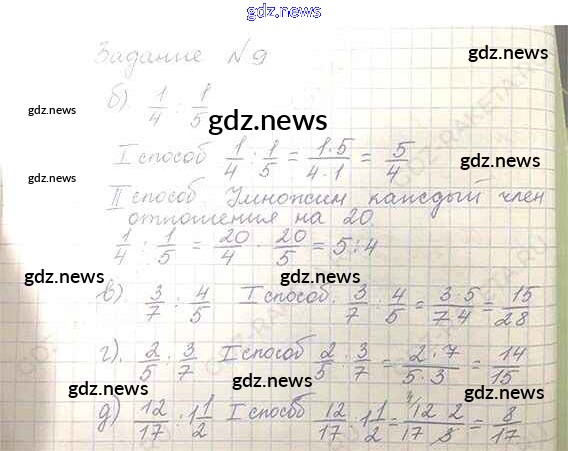 gdz.news
gdz.news
Задание №9
gdz.news
б). 1/4 : 1/5
gdz.news
gdz.news
I способ 1/4 : 1/5 = 1·5/4·1 = 5/4
gdz.news
gdz.news
II способ. Умножим каждый член
отношения на 20.
1/4 : 1/5 = 20/4 : 20/5 = 5:4
gdz.news
gdz.news
в) 3/7 : 4/5 I способ. 3/7 : 4/5 = 3·5/7·4 = 15/28
г). 2/5 : 3/7 I способ 2/5 : 3/7 = 2·7/5·3 = 14/15
gdz.news
gdz.news
д) 12/17 : 1 1/2 I способ 12/17 : 1 1/2 = 12 2/17 3 = 8/17